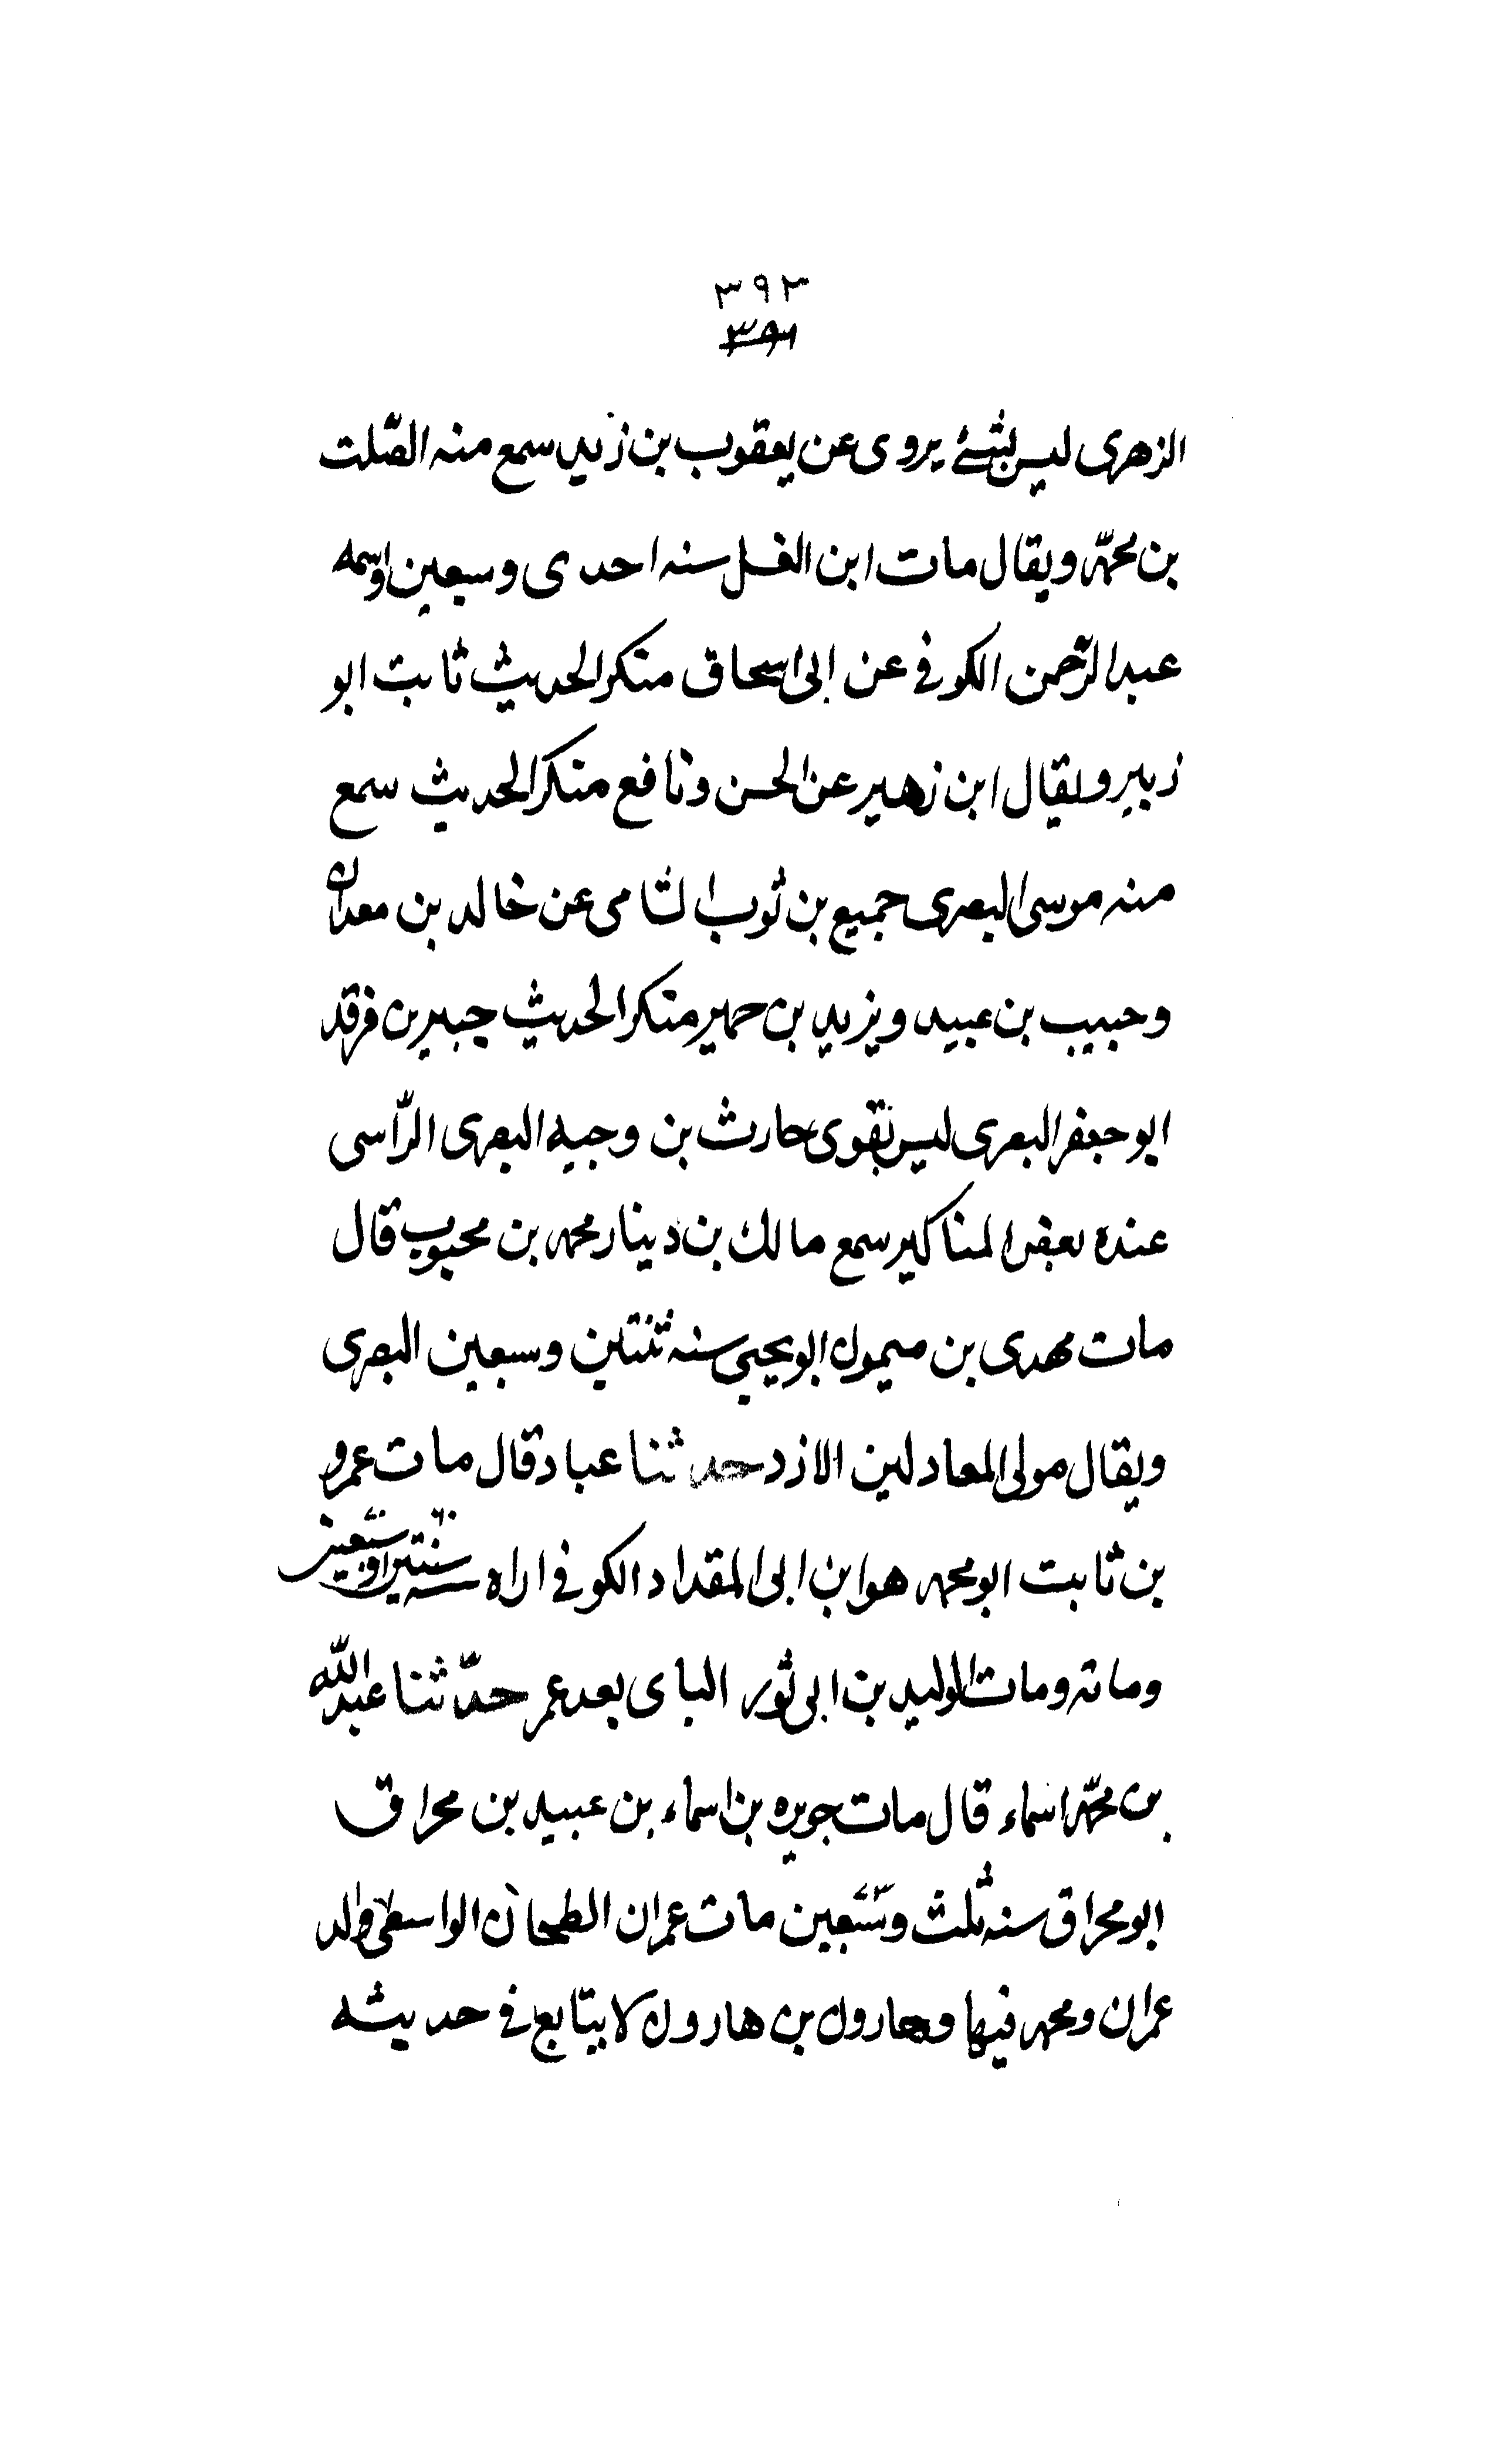 ٣٩٢
٣٩١
الزهرى ليس بشئ يروى عن يعقوب بن زيد سمع منه الصّلت
بن محمّد ويقال مات ابن الغسل سنه احدى وسبعين واسمه
عبد الرّحمن الكوفى عن ابى اسحاق منكر الحديث ثابت ابو
زبير ويقال ابن زهير عن الحسن ونافع منكر الحديث سمع
منه موسى البصرى جميع بن ثوب الشامى عن خالد بن معدان
وحبيب بن عبيد ويزيد بن حمير منكر الحديث جبير بن فرقد
ابو جعفر البصرى ليس بقوى حارث بن وجيه البصرى الرّاسى
عنده بعض المناكير سمع مالك بن دينار محمد بن محبوب قال
مات مهدى بن ميمون ابو يحيى سنه ثنتين وسبعين البصرى
ويقال مولى المعادلين الازد حدثنا عباد قال مات عمرو
بن ثابت ابو محمد هو ابن ابى المقداد الكوفى اراه سنه ثنتين وسبعين
ومائه ومات الوليد بن ابى ثور الباى بعد عمر حدّثنا عبد الله
بن محمّد اسماء قال مات جويره بن اسماء بن عبيد بن محراق
ابو محراق سنه ثلث وسبعين مات عمران الطحان الواسطى والد
عمران ومحمد فيها وهارون بن هارون لا يتابع فى حديثه